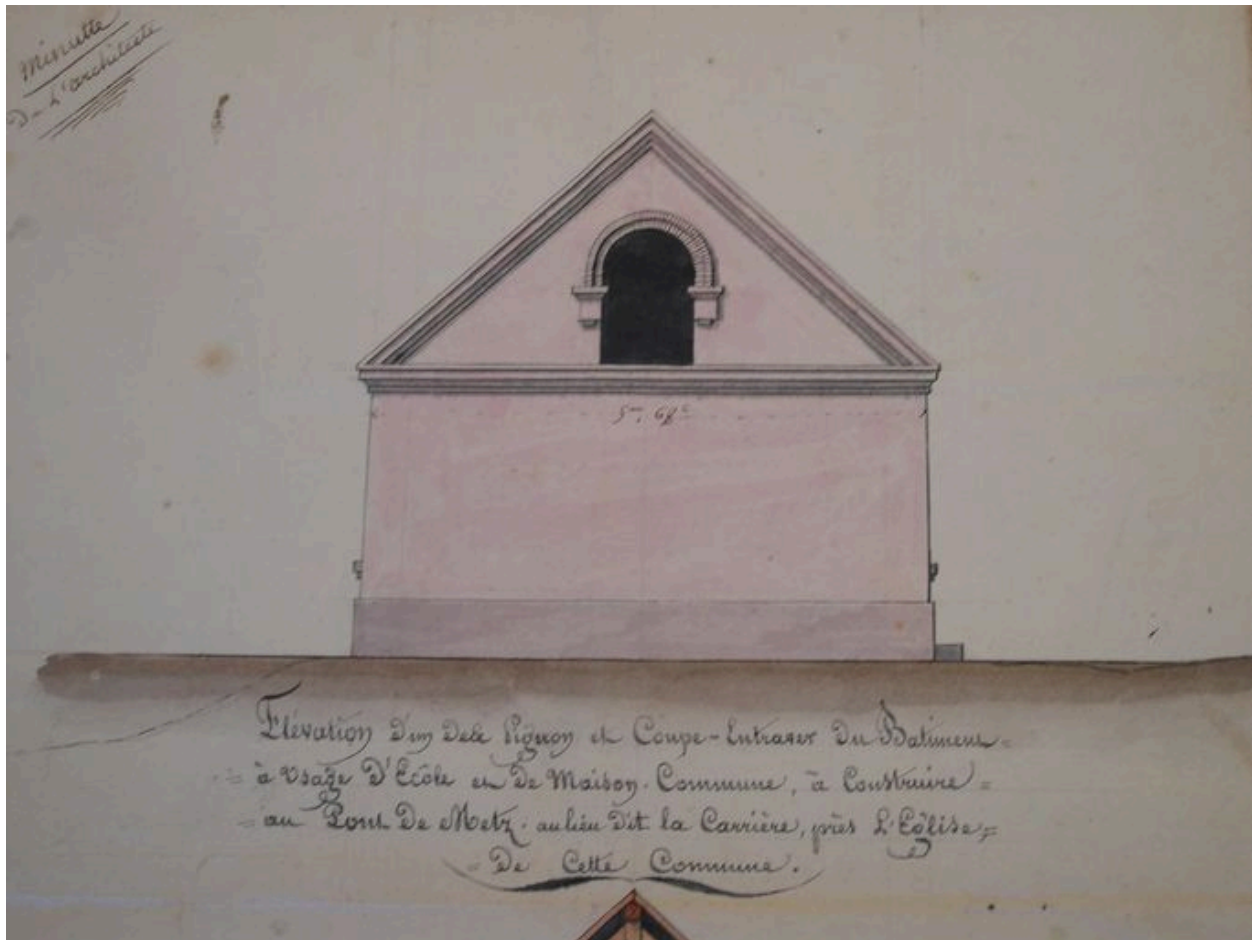 Minutte
De L'architecte
5m, 68c
Elévation D'un Des Pignon et Coupe-Entraver Du Batiment
à Usage D'Ecôle et De Maison-Commune, à Construire
au Pont De Metz. au lieu Dit la Carrière, près L'Eglise
De Cette Commune.